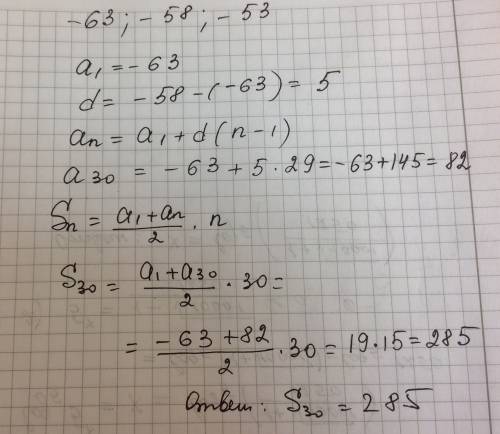 -63; -58; -53
a₁ = -63
d = -58 - (-63) = 5
aₙ = a₁ + d(n-1)
a₃₀ = -63 + 5 · 29 = -63 + 145 = 82
Sₙ = (a₁ + aₙ)/2 · n
S₃₀ = (a₁ + a₃₀)/2 · 30 =
= (-63 + 82)/2 · 30 = 19 · 15 = 285
Ответ: S₃₀ = 285